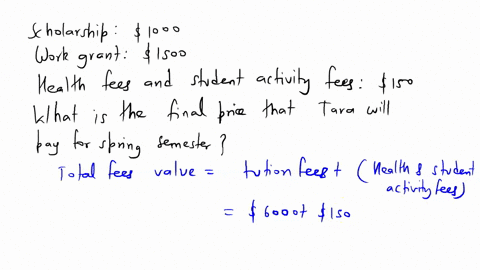 Scholarship: $1000
Work grant: $1500
Health fees and student activity fees: $150
What is the final price that Tara will
pay for spring semester?
Total fees value = tution fees + (Health & student
activity fees)
= $6000 + $150